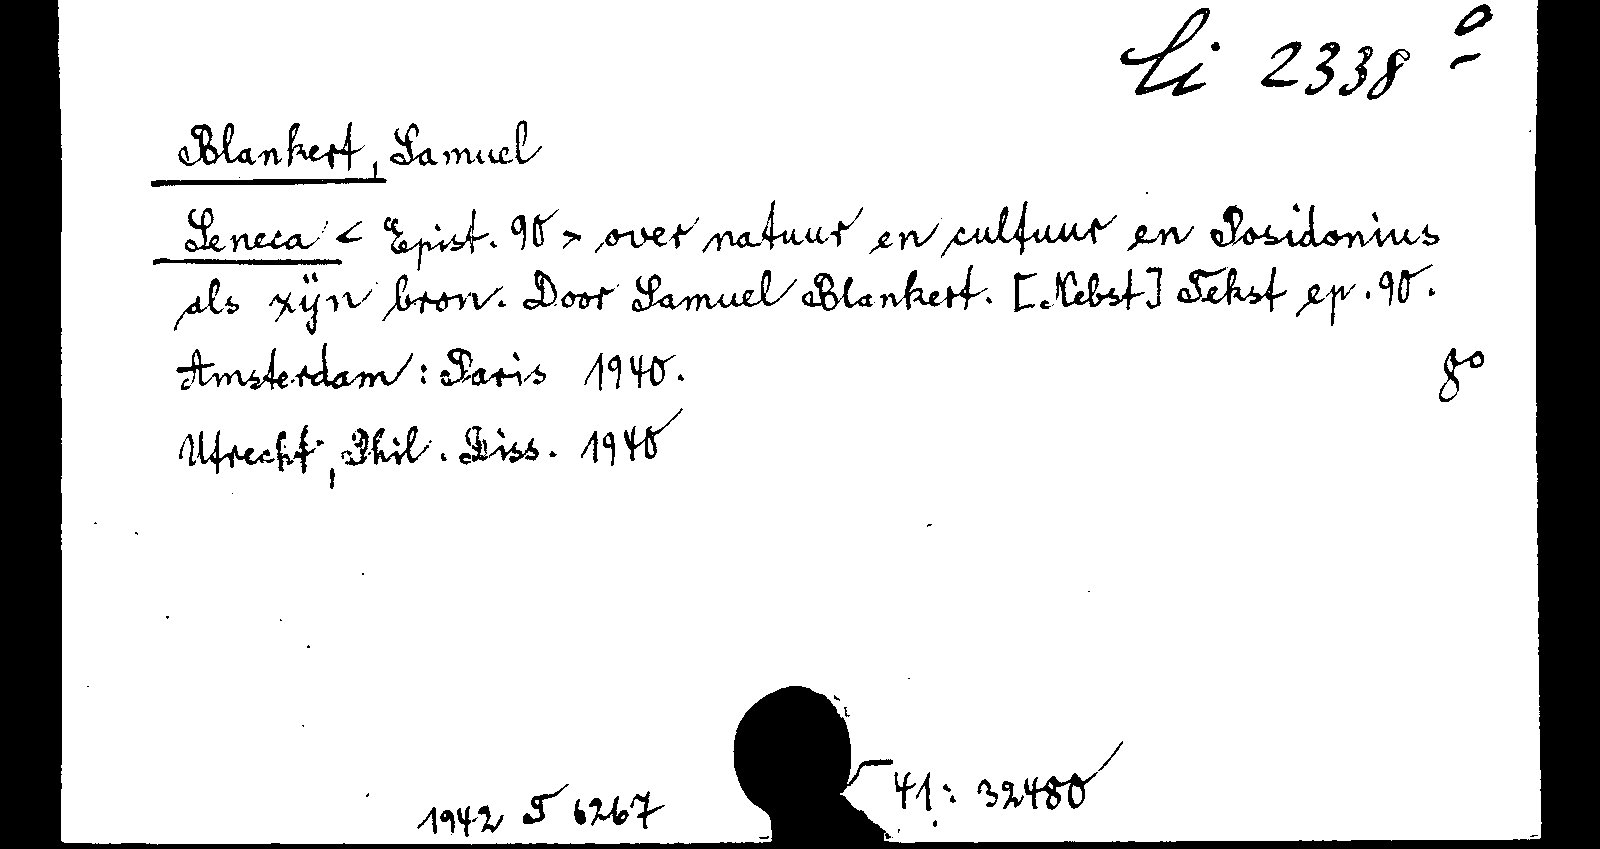 Li 2338 o
Blankert, Samuel
Seneca < Epist. 90 > over natuur en cultuur en Posidonius
als zijn bron. Door Samuel Blankert. [Nebst] Tekst ep. 90.
Amsterdam: Paris 1940. 8°
Utrecht, Phil. Diss. 1940
41: 32480
1942 T 6267